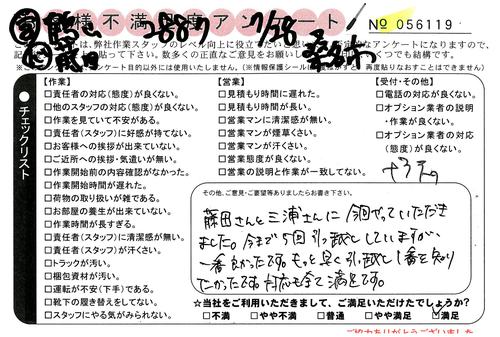 お客様不満足度アンケート
2887 7/28
№ 056119
弊社作業スタッフのレベル向上に役立てたいと
アンケートになりますので、
数多くの正直なご意見をお聞かせ下さい。
くつでも結構です。
アンケート目的以外には使用いたしません。(※情報保護シールに
再度貼りなおすことはできません)
チェックリスト
【作業】
□責任者の対応(態度)が良くない。
□他のスタッフの対応(態度)が良くない。
□作業を見ていて不安がある。
□責任者(スタッフ)に好感が持てない。
□お客様への挨拶が出来ていない。
□ご近所への挨拶・気遣いが無い。
□作業開始前の内容確認がなかった。
□作業開始時間が遅れた。
□荷物の取り扱いが雑である。
□お部屋の養生が出来ていない。
□作業時間が長すぎる。
□責任者(スタッフ)に清潔感が無い。
□責任者(スタッフ)が汗くさい。
□トラックが汚い。
□梱包資材が汚い。
□運転が不安(下手)である。
□靴下の履き替えをしてない。
□スタッフにやる気がみられない。
【営業】
□見積もり時間に遅れた。
□見積もり時間が長い。
□営業マンに清潔感が無い。
□営業マンが煙草くさい。
□営業マンが汗くさい。
□営業態度が良くない。
□営業の説明と作業が一致してない。
【受付・その他】
□電話の対応が良くない。
□オプション業者の説明
・作業が良くない。
□オプション業者の対応
(態度)が良くない。
その他、ご意見・ご要望等ありましたらお書き下さい。
藤田さんと三浦さんに今回やっていただき
ました。今まで5回引っ越ししていますが、
一番良かったです。もっと早く引っ越し1番を知り
たかったです。対応も全て満足です。
☆当社をご利用いただきまして、ご満足いただけたでしょうか?
□不満 □やや不満 □普通 □やや満足 ☑満足
ご協力ありがとうございました